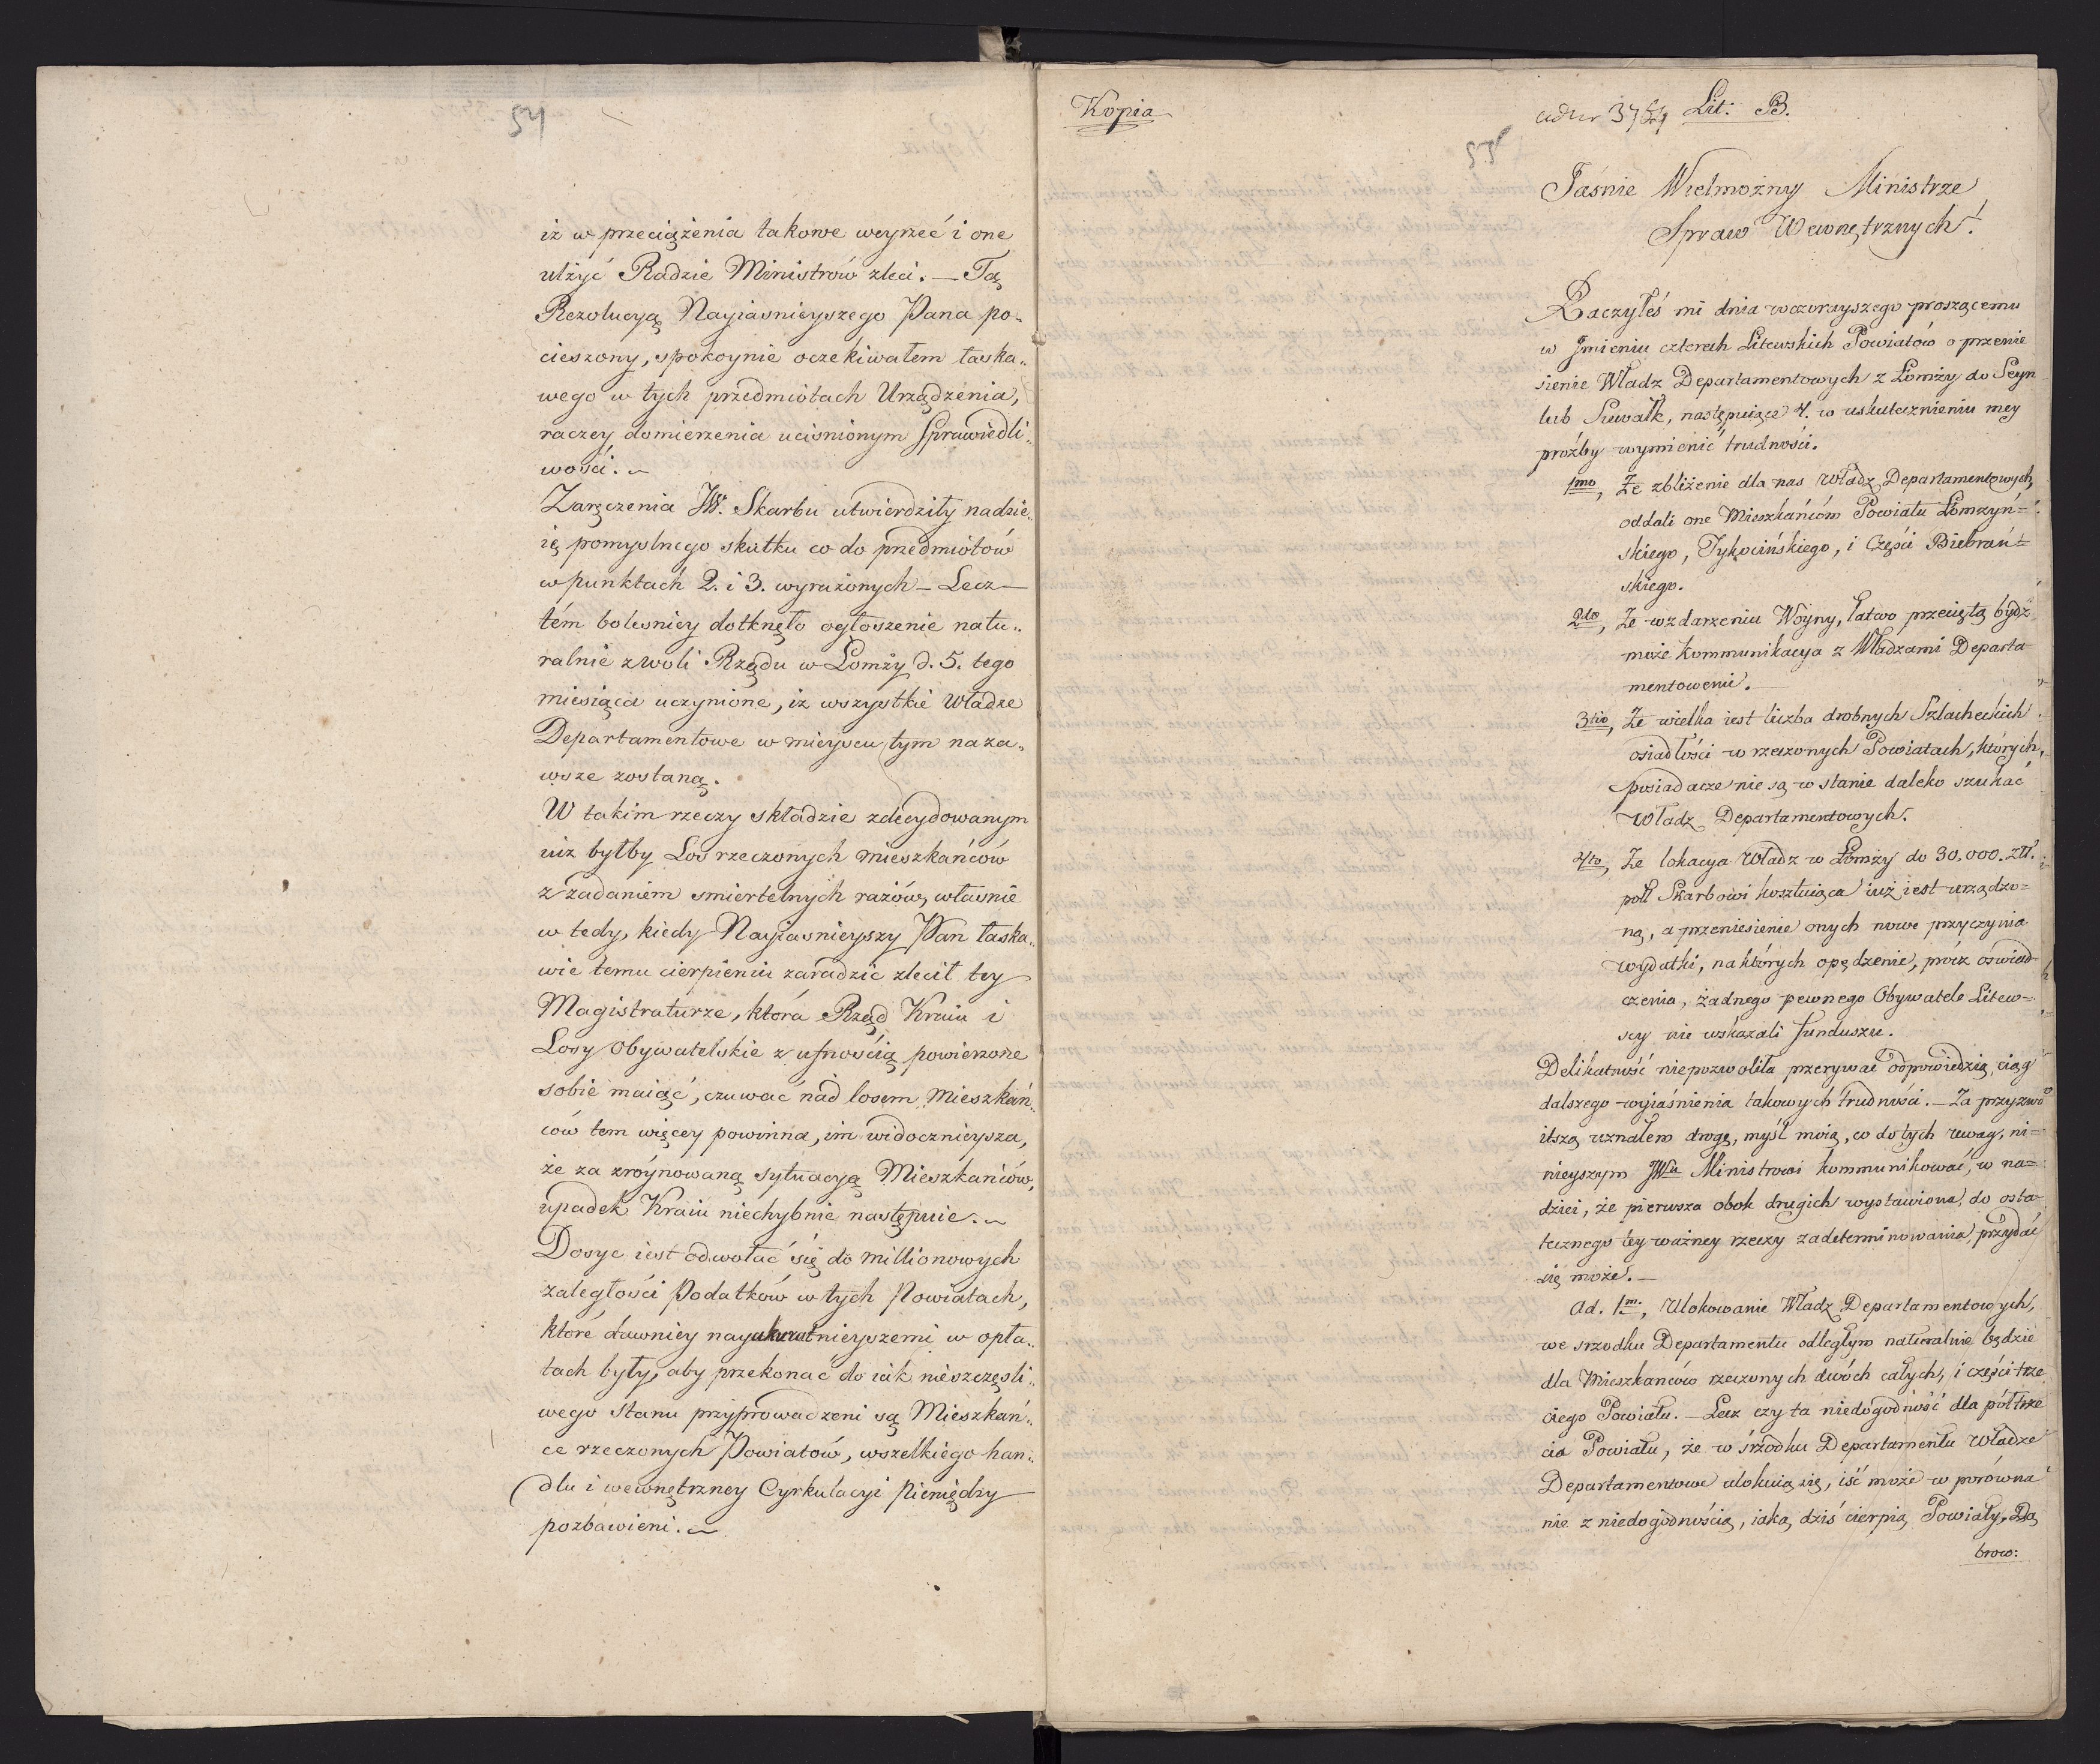 54
iż w przeciążenia takowe weyrzeć i one
ulżyć Radzie Ministrów zleci. — Tą
Rezolucyą Nayiaśnieyszego Pana po„
cieszony, spokoynie oczekiwałem łaska„
wego w tych przedmiotach Urządzenia,
raczey domierzenia uciśnionym Sprawiedli„
wości.
Zaręczenia JW. Skarbu utwierdziły nadzie„
ię pomyślnego skutku co do przedmiotów
w punktach 2. i 3. wyrażonych — Lecz —
tém boleśniey dotknęło ogłoszenie natu„
ralnie z woli Rządu w Łomży d. 5. tego
miesiąca uczynione, iż wszystkie Władze
Departamentowe w mieyscu tym na za„
wsze zostaną.
W takim rzeczy składzie zdecydowanym
iuż byłby Los rzeczonych mieszkańców
z zadaniem smiertelnych razów, właśnie
w tedy, kiedy Nayiaśnieyszy Pan łaska„
wie temu cierpieniu zaradzić zlecił tey
Magistraturze, która Rząd Kraiu i
Losy Obywatelskie z ufnością powierzone
sobie maiąć, czuwać nad losem Mieszkań„
ców tem więcey powinna, im widocznieysza,
że za zróynowaną sytuacyą Mieszkańców,
upadek Kraiu niechybnie następuie.
Dosyć iest odwołać się do millionowych
zaległości Podatków w tych Powiatach,
które dawniey nayakuratnieyszemi w opła„
tach były, aby przekonać do iak nieszczęśli„
wego stanu przyprowadzeni są Mieszkań„
ce rzeczonych Powiatów, wszelkiego han„
dlu i wewnętrzney Cyrkulacyi pieniędzy
pozbawieni.
Kopia
ad nr Lit: B.
55
Jaśnie Wielmożny Ministrze
Spraw Wewnętrznych!
Raczyłeś mi dnia wczorayszego proszącemu
w Jmieniu czterech Litewskich Powiatów o przenie
sienie Władz Departamentowych z Łomży do Seyn
lub Suwałk, następuiące 4. w uskutecznieniu mey
próżby wymienić trudności.
1mo, Że zbliżenie dla nas Władz Departamentowych,
oddali one Mieszkańców Powiatu Łomżyń=
skiego, Tykocińskiego, i Części Biebrań=
skiego.
2do, Że w zdarzeniu Woyny, łatwo przeciętą bydź
może Kommunikacya z Władzami Departa
mentowemi. —
3tio, Że wielka iest liczba drobnych Szlacheckich
osiadłości w rzeczonych Powiatach, których,
posiadacze nie są w stanie daleko szukać
Władz Departamentowych.
4to, Że lokacya Władz w Łomży do 30.000. złł.
poll Skarbowi kosztuiąca iuż iest urządzo=
ną, a przeniesienie onych nowe przyczynia
wydatki, na których opędzenie, prócz oświad
czenia, żadnego pewnego Obywatele Litew=
scy nie wskazali funduszu.
Delikatność niepozwoliła przerywać odpowiedzią, ciąg
dalszego wyiaśnienia takowych trudności. — Za przyzwo
itszą uznałem drogę, myśl moią, co do tych uwag, ni=
nieyszym JWu Ministrowi kommunikować, w na=
dziei, że pierwsza obok drugich wystawiona, do osta
tecznego tey ważney rzeczy zadeterminowania, przydać
się może. —
Ad. 1m., Ulokowanie Władz Departamentowych,
we srzodku Departamentu odległym naturalnie będzie
dla Mieszkańców rzeczonych dwóch całych, i części trze
ciego Powiatu. — Lecz czy ta niedogodność dla półtrze
cia Powiatu, że w śrzodku Departamentu Władze
Departamentowe ulokuią się, iść może w porówna
nie z niedogodnością, iaką dziś cierpią Powiaty, Dą
brow: